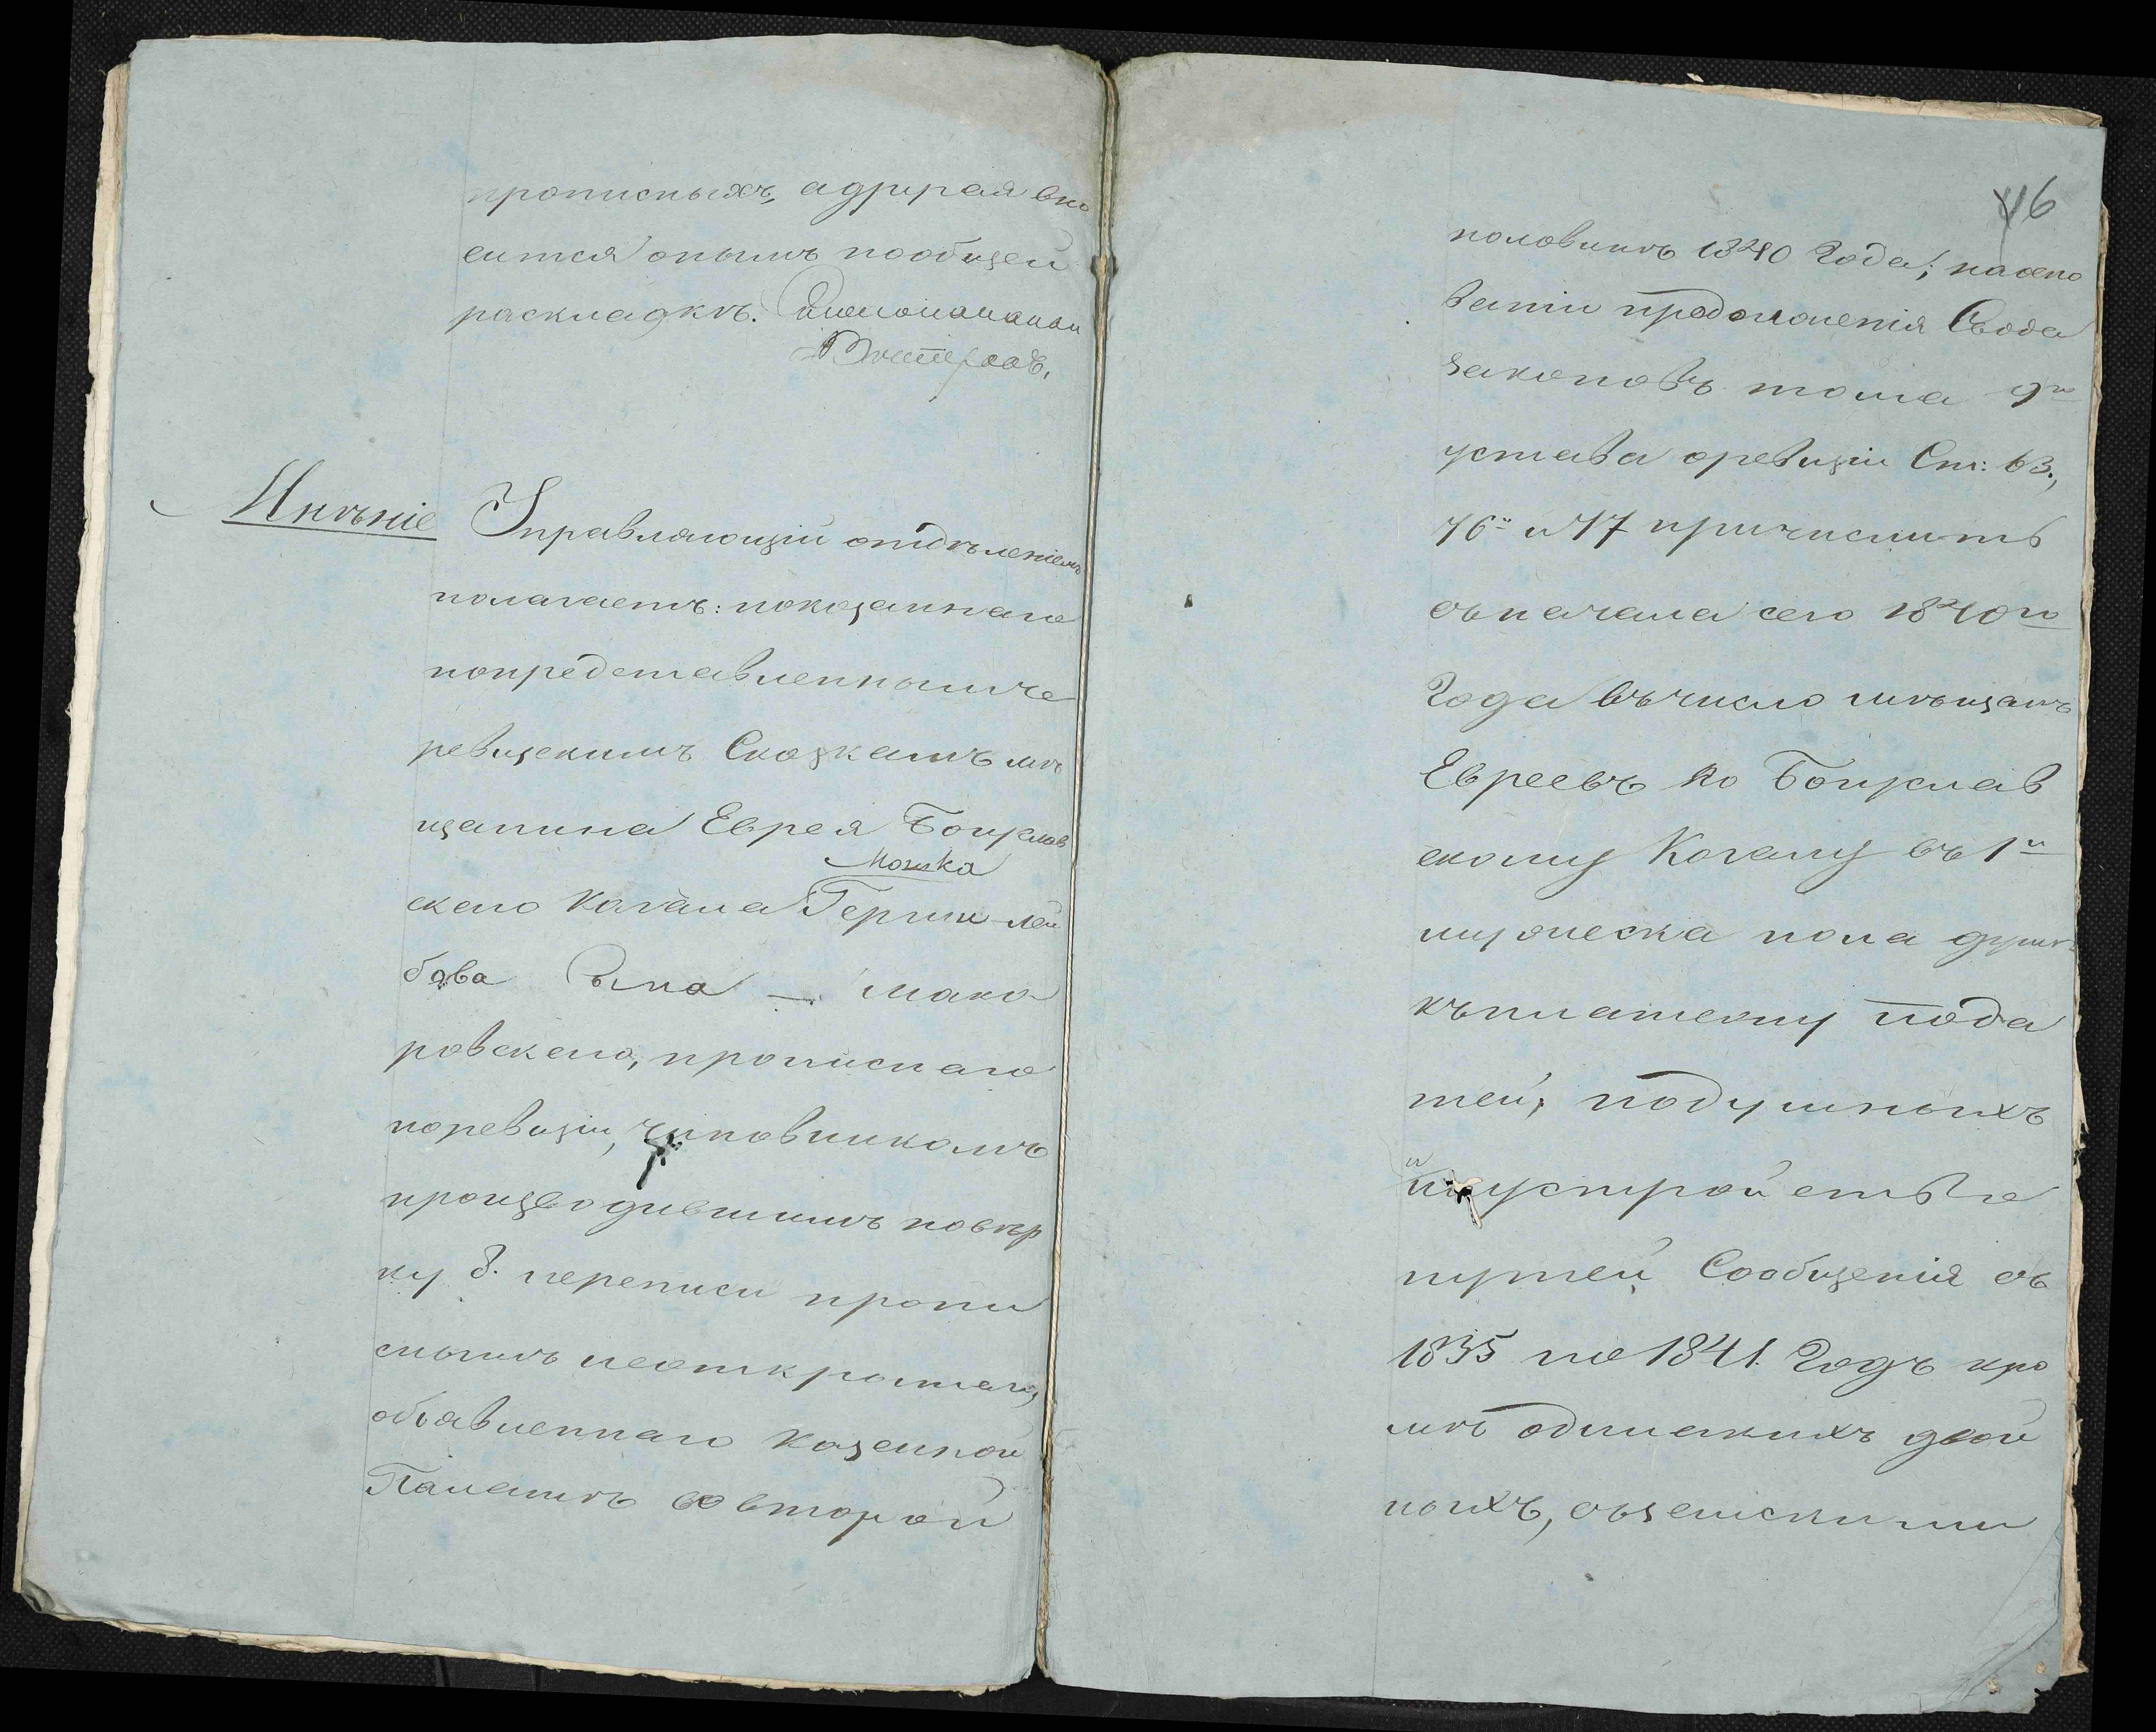 прописныхъ, а другая вно
сится онымъ пообщей
раскладкѣ.
Мнѣніе
Управляющій отдѣленіемъ
полагаетъ: показаннаго
попредставленнымъ че
ревизскимъ Сказкамъ мѣ
щанина Еврея Богуслав
Мошка
скаго Кагала Герши-Лей
бова Сына — Мака
ровскаго, прописнаго
поревизіи, чиновникомъ
производившимъ повѣр
ку 8. переписи пропи
снымъ неоткрытаго,
объявленнаго Казенной
Палатѣ во второй
6
половинѣ 1840 Года; на осно
ваніи продолженія Свода
законовъ тома 9го
устава оревизіи Ст: 63.,
76й и 77 причислить
съ начала сего 1840го
Года въ число мѣщанъ
Евреевъ по Богуслав
скому Кагалу въ 1й
мужеска пола душѣ
къ платежу пода
тей, подушныхъ
и
на устройства
путей Сообщенія съ
1835 по 1841. Годъ кро
мѣ одинакихъ двой
ныхъ, съ земскими